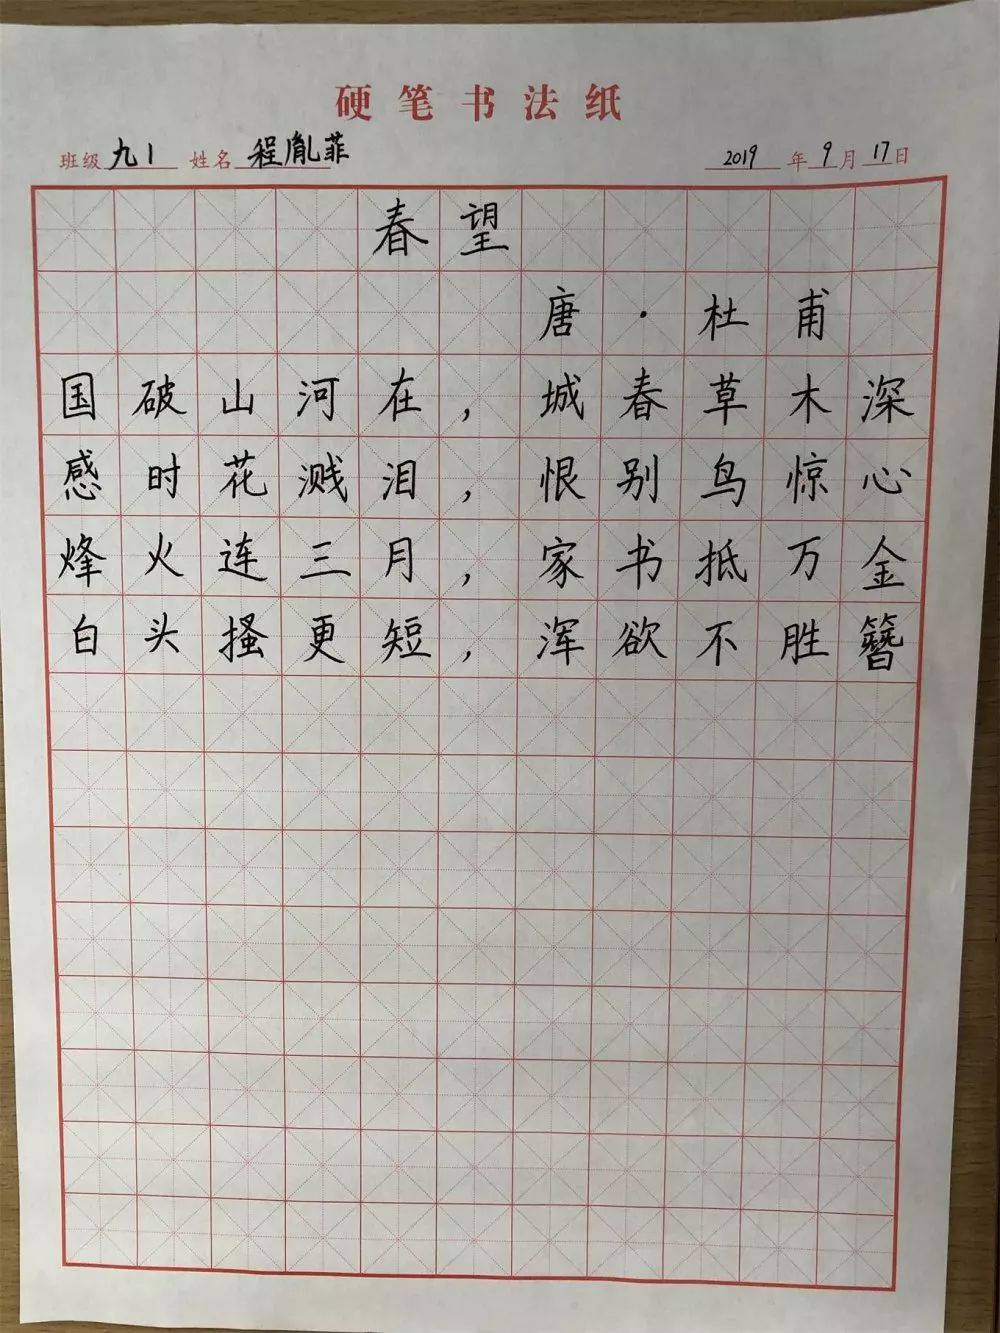 硬笔书法纸
班级 九1 姓名 程胤菲 2019 年 9 月 17 日
春望
唐·杜甫
国破山河在，城春草木深
感时花溅泪，恨别鸟惊心
烽火连三月，家书抵万金
白头搔更短，浑欲不胜簪